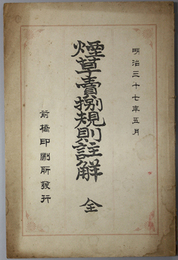 明治三十七年五月
煙草賣捌規則註解 全
前橋印刷所發行